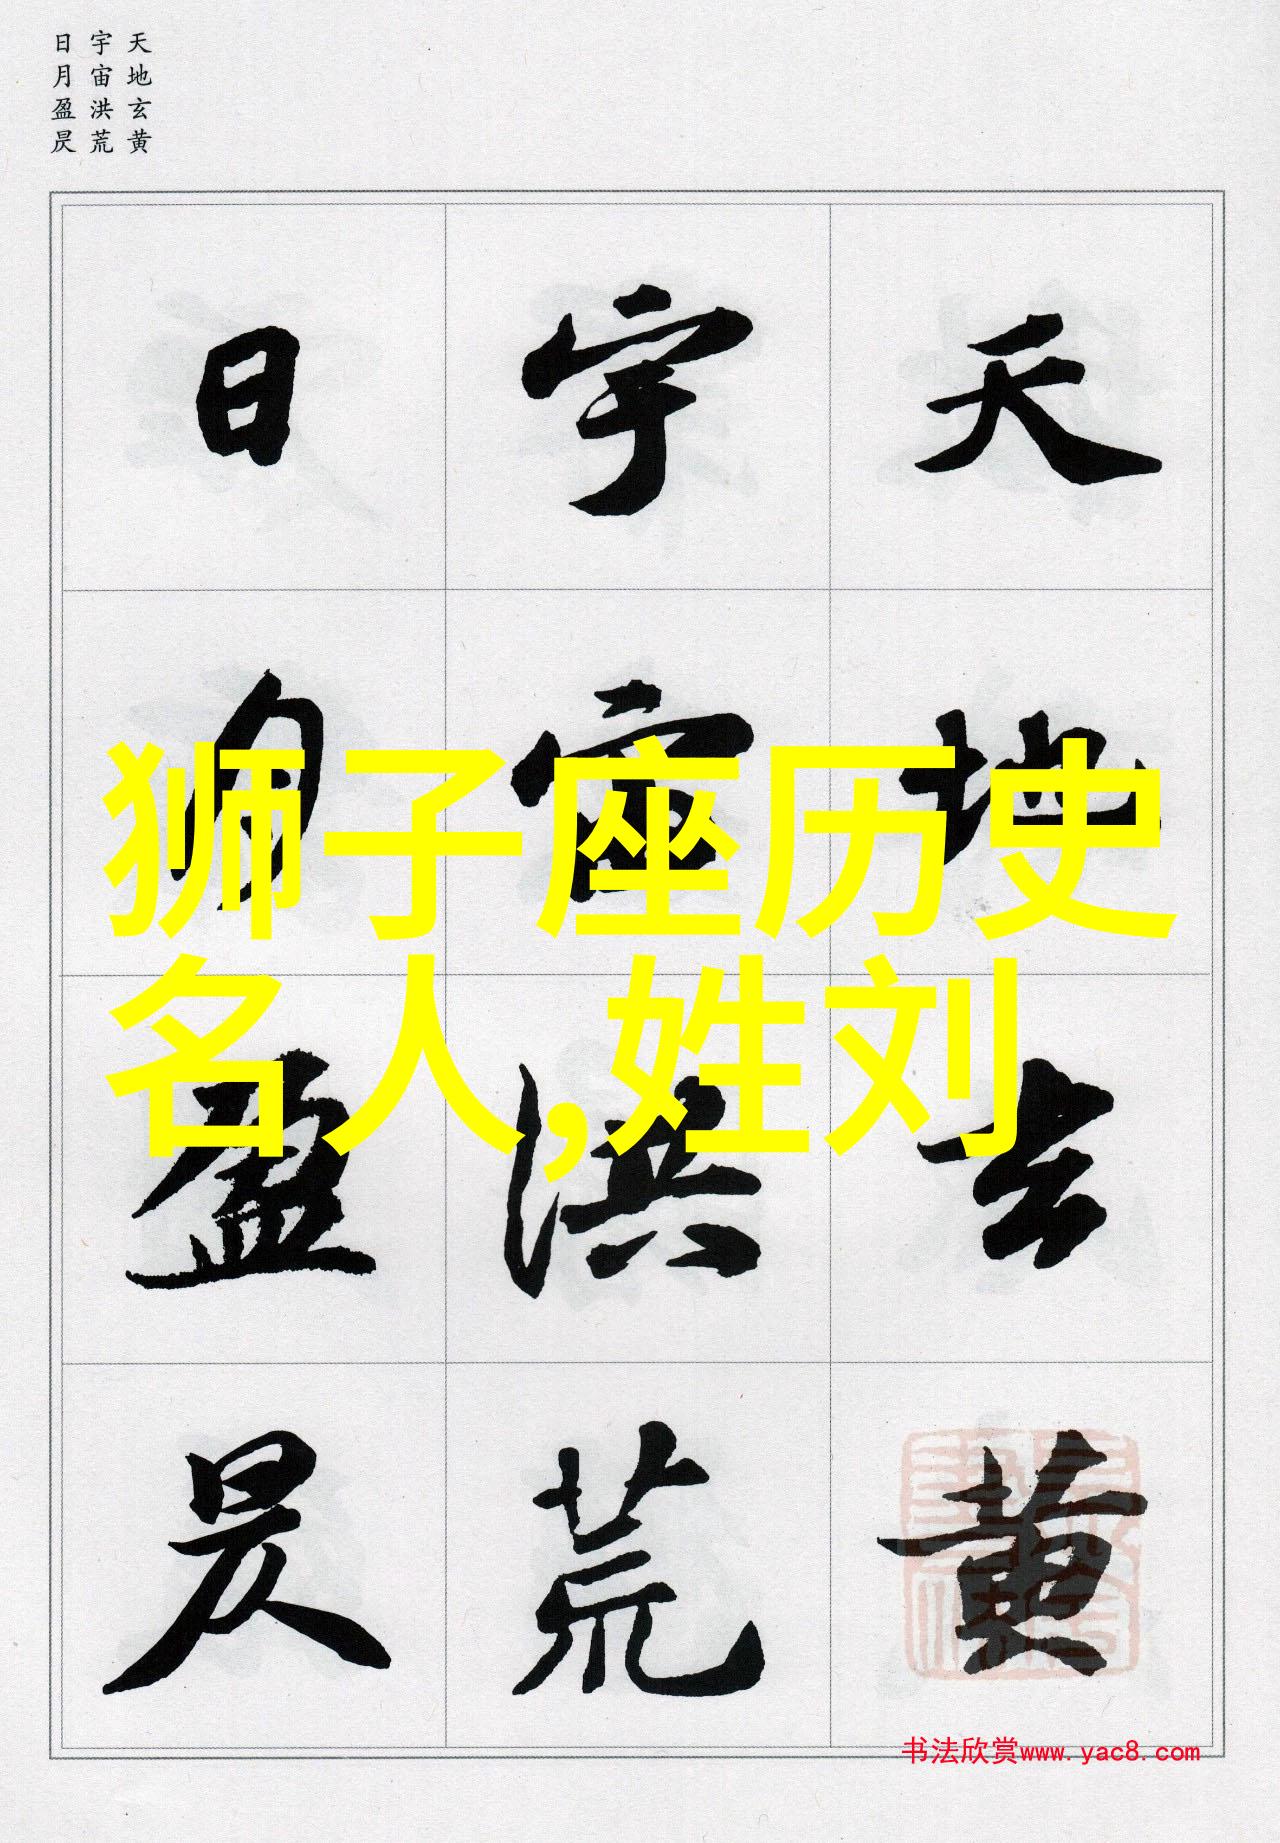 天地玄黄
宇宙洪荒
日月盈昃
天地玄黄
宇宙洪荒
日月盈昃
狮子座历史
名人,姓刘
书法欣赏www.yac8.com